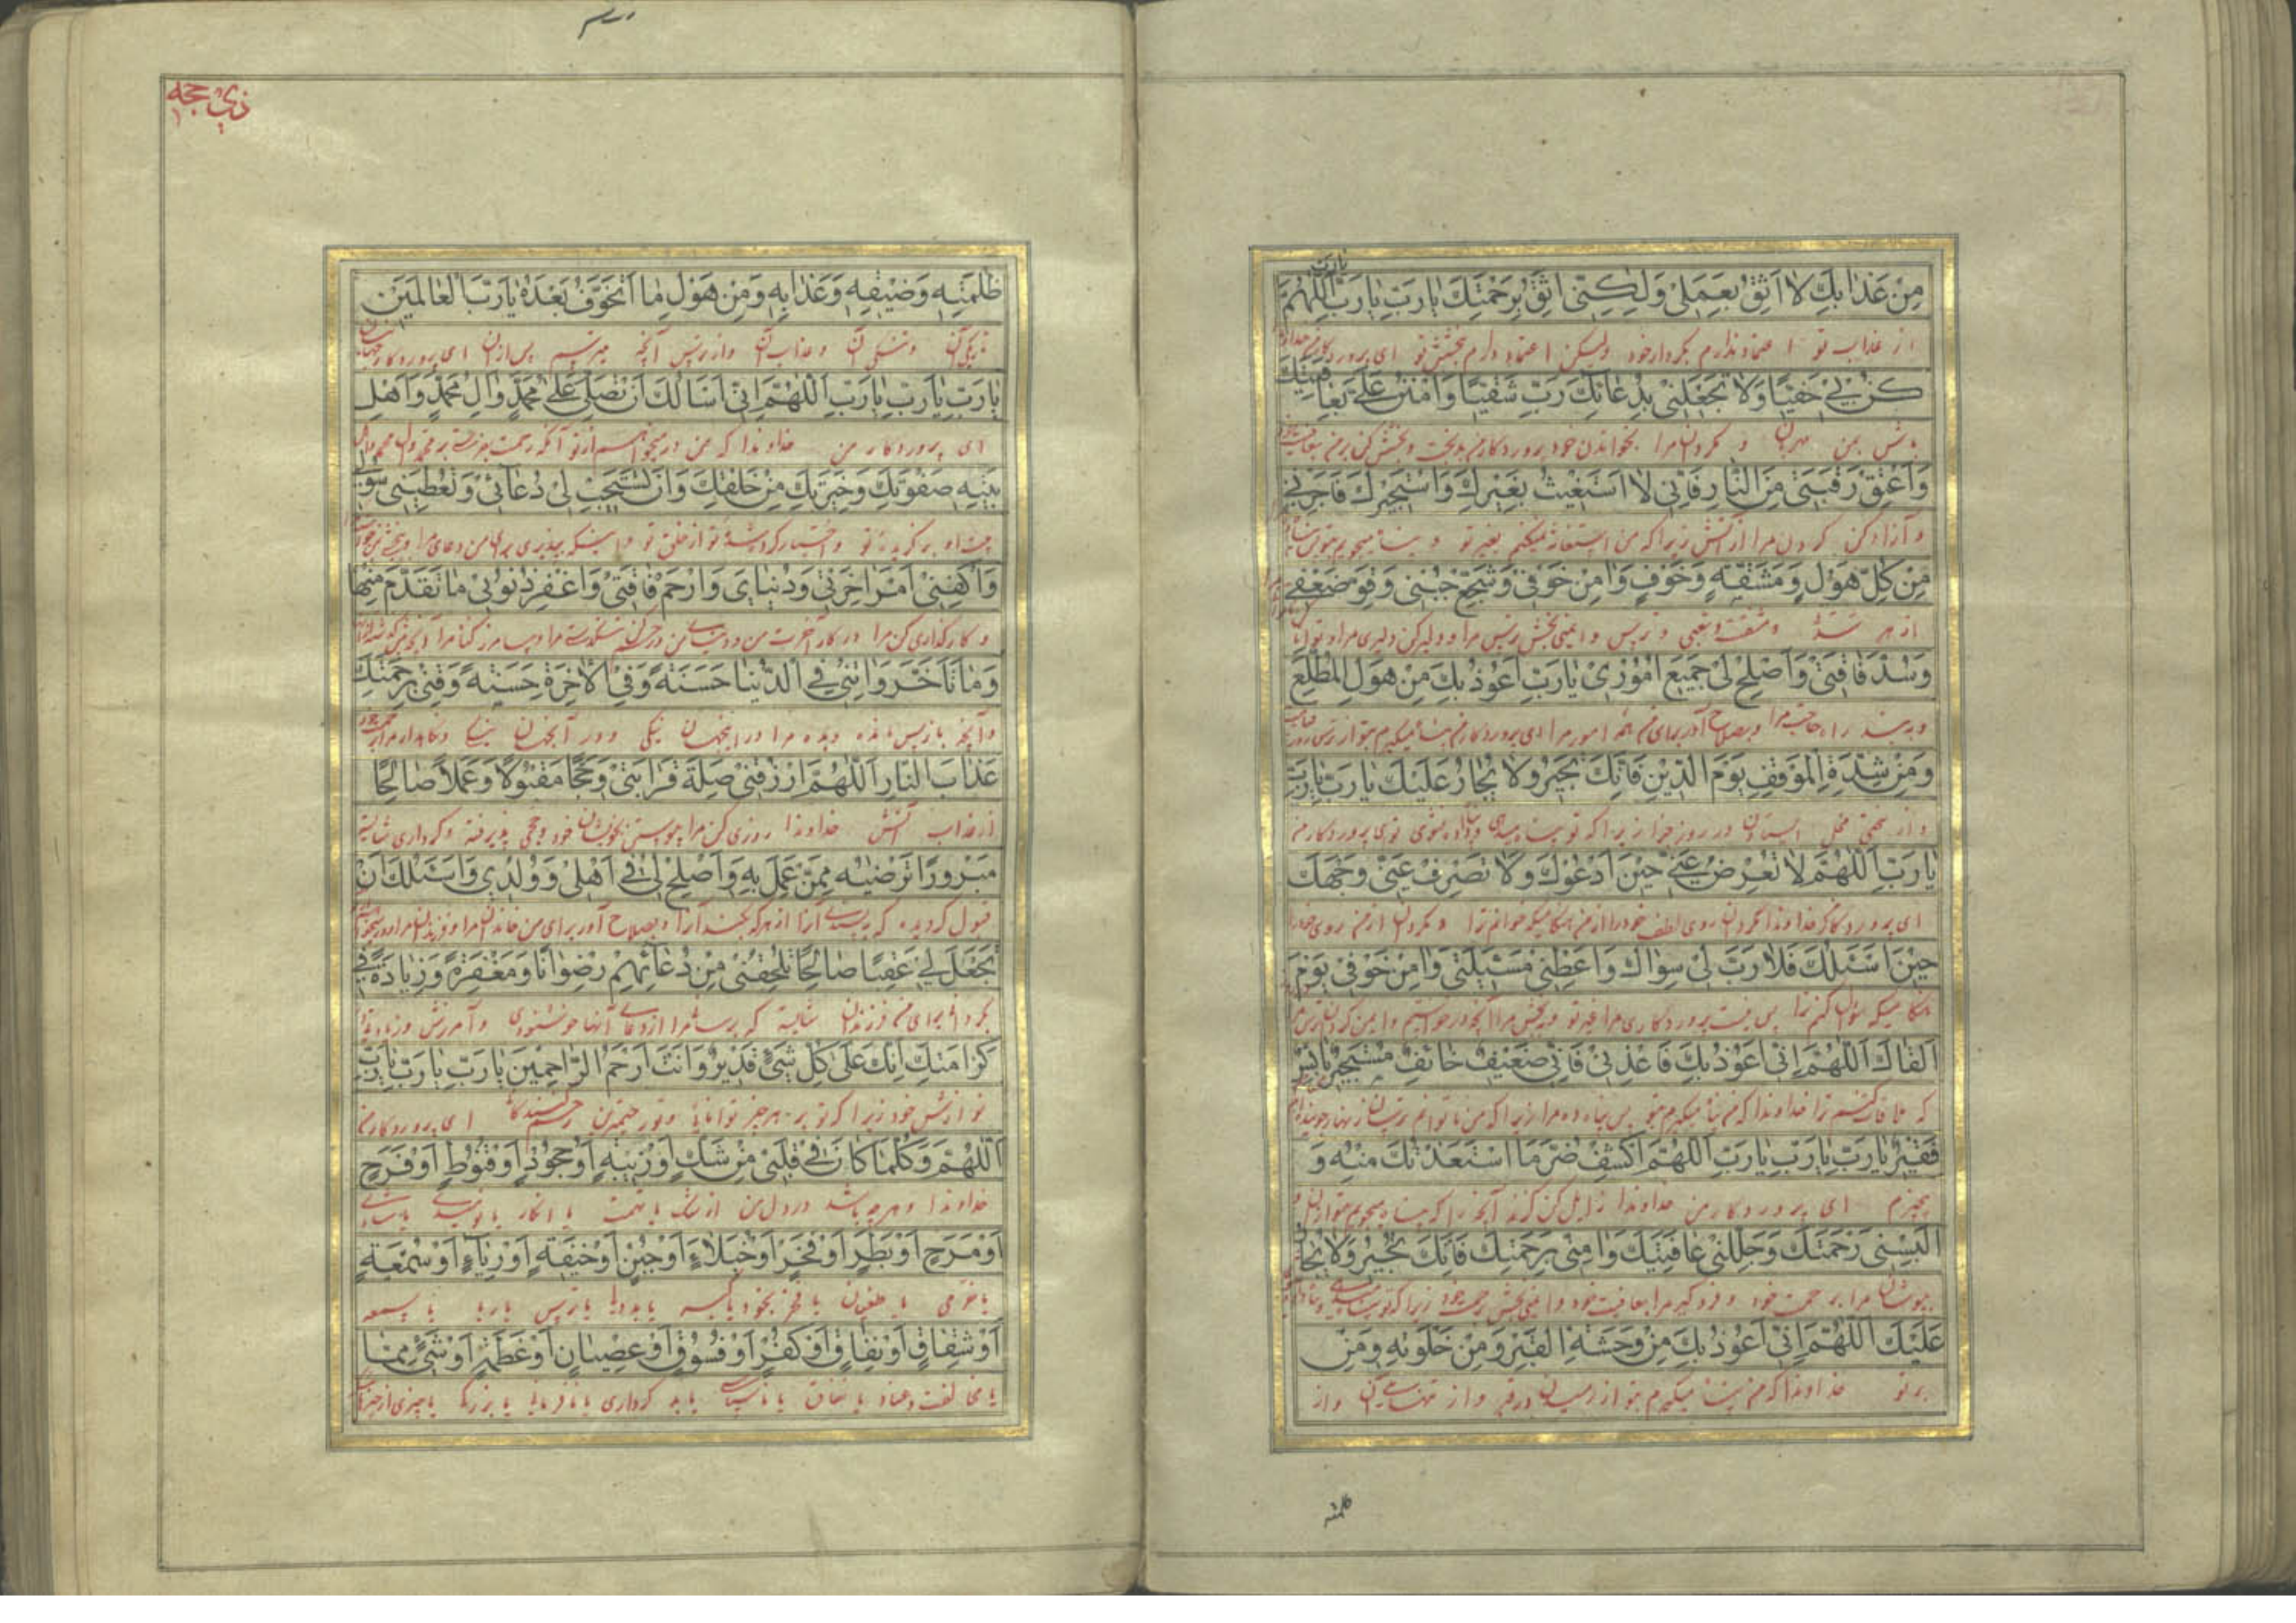 يارب
مِنْ عَذابِكَ لا اَثِقُ بِعَمَلى وَلكِنّى اَثِقُ بِرَحْمَتِكَ يارَبِّ يارَبِّ اَللّهُمَّ
از عذاب تو اعتماد ندارم بکردار خود ولیکن اعتماد دارم ببخشش تو ای پروردگار من خداوندا
كُنْ بى حَفِيًّا وَلا تَجْعَلْنى بِدُعائِكَ رَبِّ شَقِيًّا وَامْنُنْ عَلَىَّ بِعافِيَتِكَ
باش بمن مهربان و مگردان مرا بخواندن خود پروردگار من بدبخت و بخشش کن بر من بعافیت
وَاَعْتِقْ رَقَبَتى مِنَ النّارِ فَاِنّى لا اَسْتَغيثُ بِغَيْرِكَ وَاَسْتَجيرُكَ فَاَجِرْنى
و آزاد کن گردن مرا از آتش زیرا که من استغاثه نمیکنم بغیر تو و پناه میجویم بتو
مِنْ كُلِّ هَوْلٍ وَمَشَقَّةٍ وَخَوْفٍ وَامِنْ خَوْفى وَشَجِّعْ جُبْنى وَقَوِّ ضَعْفى
از هر و مشقت و تعبی و ترس و ایمنی بخش ترس مرا و دلیر کن مرا و توانا
وَسُدَّ فاقَتى وَاَصْلِحْ لى جَميعَ اُمُورى يارَبِّ اَعُوذُ بِكَ مِنْ هَوْلِ الْمُطَّلَعِ
و به بند راه حاجت مرا و بصلاح آور برای من همه امور مرا ای پروردگار من پناه میگیرم بتو از ترس روز
وَمِنْ شِدَّةِ الْمَوْقِفِ يَوْمَ الدّينِ فَاِنَّكَ تُجيرُ وَلا يُجارُ عَلَيْكَ يارَبِّ يارَبِّ
و از سختی محل ایستادن در روز جزا زیرا که تو پناه میدهی و پناه داده نشوی توی پروردگار من
يارَبِّ اَللّهُمَّ لا تُعْرِضْ عَنّى حينَ اَدْعُوكَ وَلا تَصْرِفْ عَنّى وَجْهَكَ
ای پروردگار من خداوندا مگردان روی لطف خود را از من هنگامیکه خوانم ترا و مگردان از من روی خود را
حينَ اَسْئَلُكَ فَلا رَبَّ لى سِواكَ وَاَعْطِنى مَسْئَلَتى وَامِنْ خَوْفى يَوْمَ
هنگامیکه سؤال کنم ترا پس نیست پروردگاری مرا غیر تو و ببخش مرا آنچه درخواستم و ایمن گردان ترس مرا
اَلْقاكَ اَللّهُمَّ اِنّى اَعُوذُ بِكَ فَاَعِذْنى فَاِنّى ضَعيفٌ خائِفٌ مُسْتَجيرٌ بائِسٌ
که ملاقات کنم ترا خداوندا که من پناه میگیرم بتو پس پناه ده مرا زیرا که من ناتوانم ترسان
فَقيرٌ يارَبِّ يارَبِّ يارَبِّ اَللّهُمَّ اكْشِفْ ضُرَّ مَا اسْتَعَذْتُكَ مِنْهُ وَ
بیچیزم ای پروردگار من خداوندا زایل کن گزند آنچه را که پناه میجویم بتو از آن و
اَلْبِسْنى رَحْمَتَكَ وَجَلِّلْنى عافِيَتَكَ وَامِنّى بِرَحْمَتِكَ فَاِنَّكَ تُجيرُ وَلا يُجارُ
بپوشان مرا برحمت خود و فروگیر مرا بعافیت خود و ایمنی بخش برحمت خود زیرا که تو پناه
عَلَيْكَ اَللّهُمَّ اِنّى اَعُوذُ بِكَ مِنْ وَحْشَةِ الْقَبْرِ وَمِنْ خَلْوَتِهِ وَمِنْ
بر تو خداوندا که من پناه میگیرم بتو از رمیدن در قبر و از تنهائی آن و از
ظلمته
ذی حجه
ظُلْمَتِهِ وَضيقِهِ وَعَذابِهِ وَمِنْ هَوْلِ ما اَتَخَوَّفُ بَعْدَهُ يارَبَّ الْعالَمينَ
تاریکی آن و تنگی آن و عذاب آن و از ترس آنچه میترسم پس از آن ای پروردگار جهانیان
يارَبِّ يارَبِّ يارَبِّ اَللّهُمَّ اِنّى اَسْاَلُكَ اَنْ تُصَلِّىَ عَلى مُحَمَّدٍ وَالِ مُحَمَّدٍ وَاَهْلِ
ای پروردگار من خداوندا که من درمیخواهم از تو آنکه رحمت بفرستی بر محمد و آل محمد و اهل
بَيْتِهِ صَفْوَتِكَ وَخِيَرَتِكَ مِنْ خَلْقِكَ وَاَنْ تَسْتَجيبَ لى دُعائى وَتُعْطِيَنى سُؤْلى
برگزیده تو و اختیار کرده شده تو از خلق تو و اینکه بپذیری برای من دعای مرا و ببخشی
وَاكْفِنى اَمْرَ اخِرَتى وَدُنْياىَ وَارْحَمْ فاقَتى وَاغْفِرْ ذُنُوبى ما تَقَدَّمَ مِنْها
و کارگذاری کن مرا در کار آخرت من و دنیای من و رحم کن تنگدستی مرا و بیامرز گناه مرا
وَما تَاَخَّرَ وَاتِنى فِى الدُّنْيا حَسَنَةً وَفِى الْاخِرَةِ حَسَنَةً وَقِنى بِرَحْمَتِكَ
و آنچه باز پس مانده و بده مرا در اینجهان نیکی و در آنجهان نیکی و نگاهدار مرا برحمت خود
عَذابَ النّارِ اَللّهُمَّ ارْزُقْنى صِلَةَ قَرابَتى وَحَجًّا مَقْبُولًا وَعَمَلًا صالِحًا
از عذاب آتش خداوندا روزی کن مرا پیوستن بخویشان خود و حجی پذیرفته و کرداری شایسته
مَبْرُورًا تَرْضيهِ مِمَّنْ عَمِلَ بِهِ وَاَصْلِحْ لى فى اَهْلى وَوُلْدى وَاَسْئَلُكَ اَنْ
قبول گردیده که به پسندی آنرا از هر که بکند آنرا و بصلاح آور برای من خاندان مرا و فرزندان مرا و درمیخواهم
تَجْعَلَ لى عَقِبًا صالِحًا تُلْحِقُنى مِنْ دُعائِهِمْ رِضْوانًا وَمَغْفِرَةً وَزِيادَةً فى
بگردانی برای من فرزندان شایسته که برسانی مرا از دعای آنها خوشنودی و آمرزش و زیادتی
كَرامَتِكَ اِنَّكَ عَلى كُلِّ شَىْءٍ قَديرٌ وَاَنْتَ اَرْحَمُ الرّاحِمينَ يارَبِّ يارَبِّ يارَبِّ
نوازش خود زیرا که تو بر هر چیز توانائی و تو رحیمترین رحم کنندگانی ای پروردگار من
اَللّهُمَّ وَكُلَّما كانَ فى قَلْبى مِنْ شَكٍّ اَوْ ريبَةٍ اَوْ جُحُودٍ اَوْ قُنُوطٍ اَوْ فَرَحٍ
خداوندا و هر چه باشد در دل من از شک یا تهمت یا انکار یا نومیدی یا شادی
اَوْ مَرَحٍ اَوْ بَطَرٍ اَوْ فَخْرٍ اَوْ خُيَلاءَ اَوْ جُبْنٍ اَوْ خيفَةٍ اَوْ رِياءٍ اَوْ سُمْعَةٍ
یا خرمی یا طغیان یا فخر بخود یا تکبر یا بددلی یا ترس یا ریا یا سمعه
اَوْ شِقاقٍ اَوْ نِفاقٍ اَوْ كُفْرٍ اَوْ فُسُوقٍ اَوْ عِصْيانٍ اَوْ عَظَمَةٍ اَوْ شَىْءٍ مِمّا
یا مخالفت و عناد یا نفاق یا ناسپاسی یا بد کرداری یا نافرمانی یا بزرگی یا چیزی از چیزها